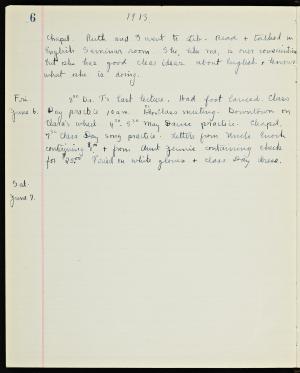 6
1913
Chapel. Ruth and I went to Lib. Read & talked in
English Seminar room. She, like me, is over conscientious
but she has good clear ideas about English & knows
what she is doing.
Fri. 8⁰⁰ Dr. T's last lecture. Had foot lanced. Class
June 6. Day practice 10 a.m. Class meeting. Downtown on
Clara's wheel. 4³⁰-5³⁰ May Dance practice. Chapel.
7⁰⁰ Class Day song practice. Letters from Uncle Enoch
containing & from Aunt Jennie containing check
for $25⁰⁰. Tried on white gloves & class Day dress.
Sat.
June 7.